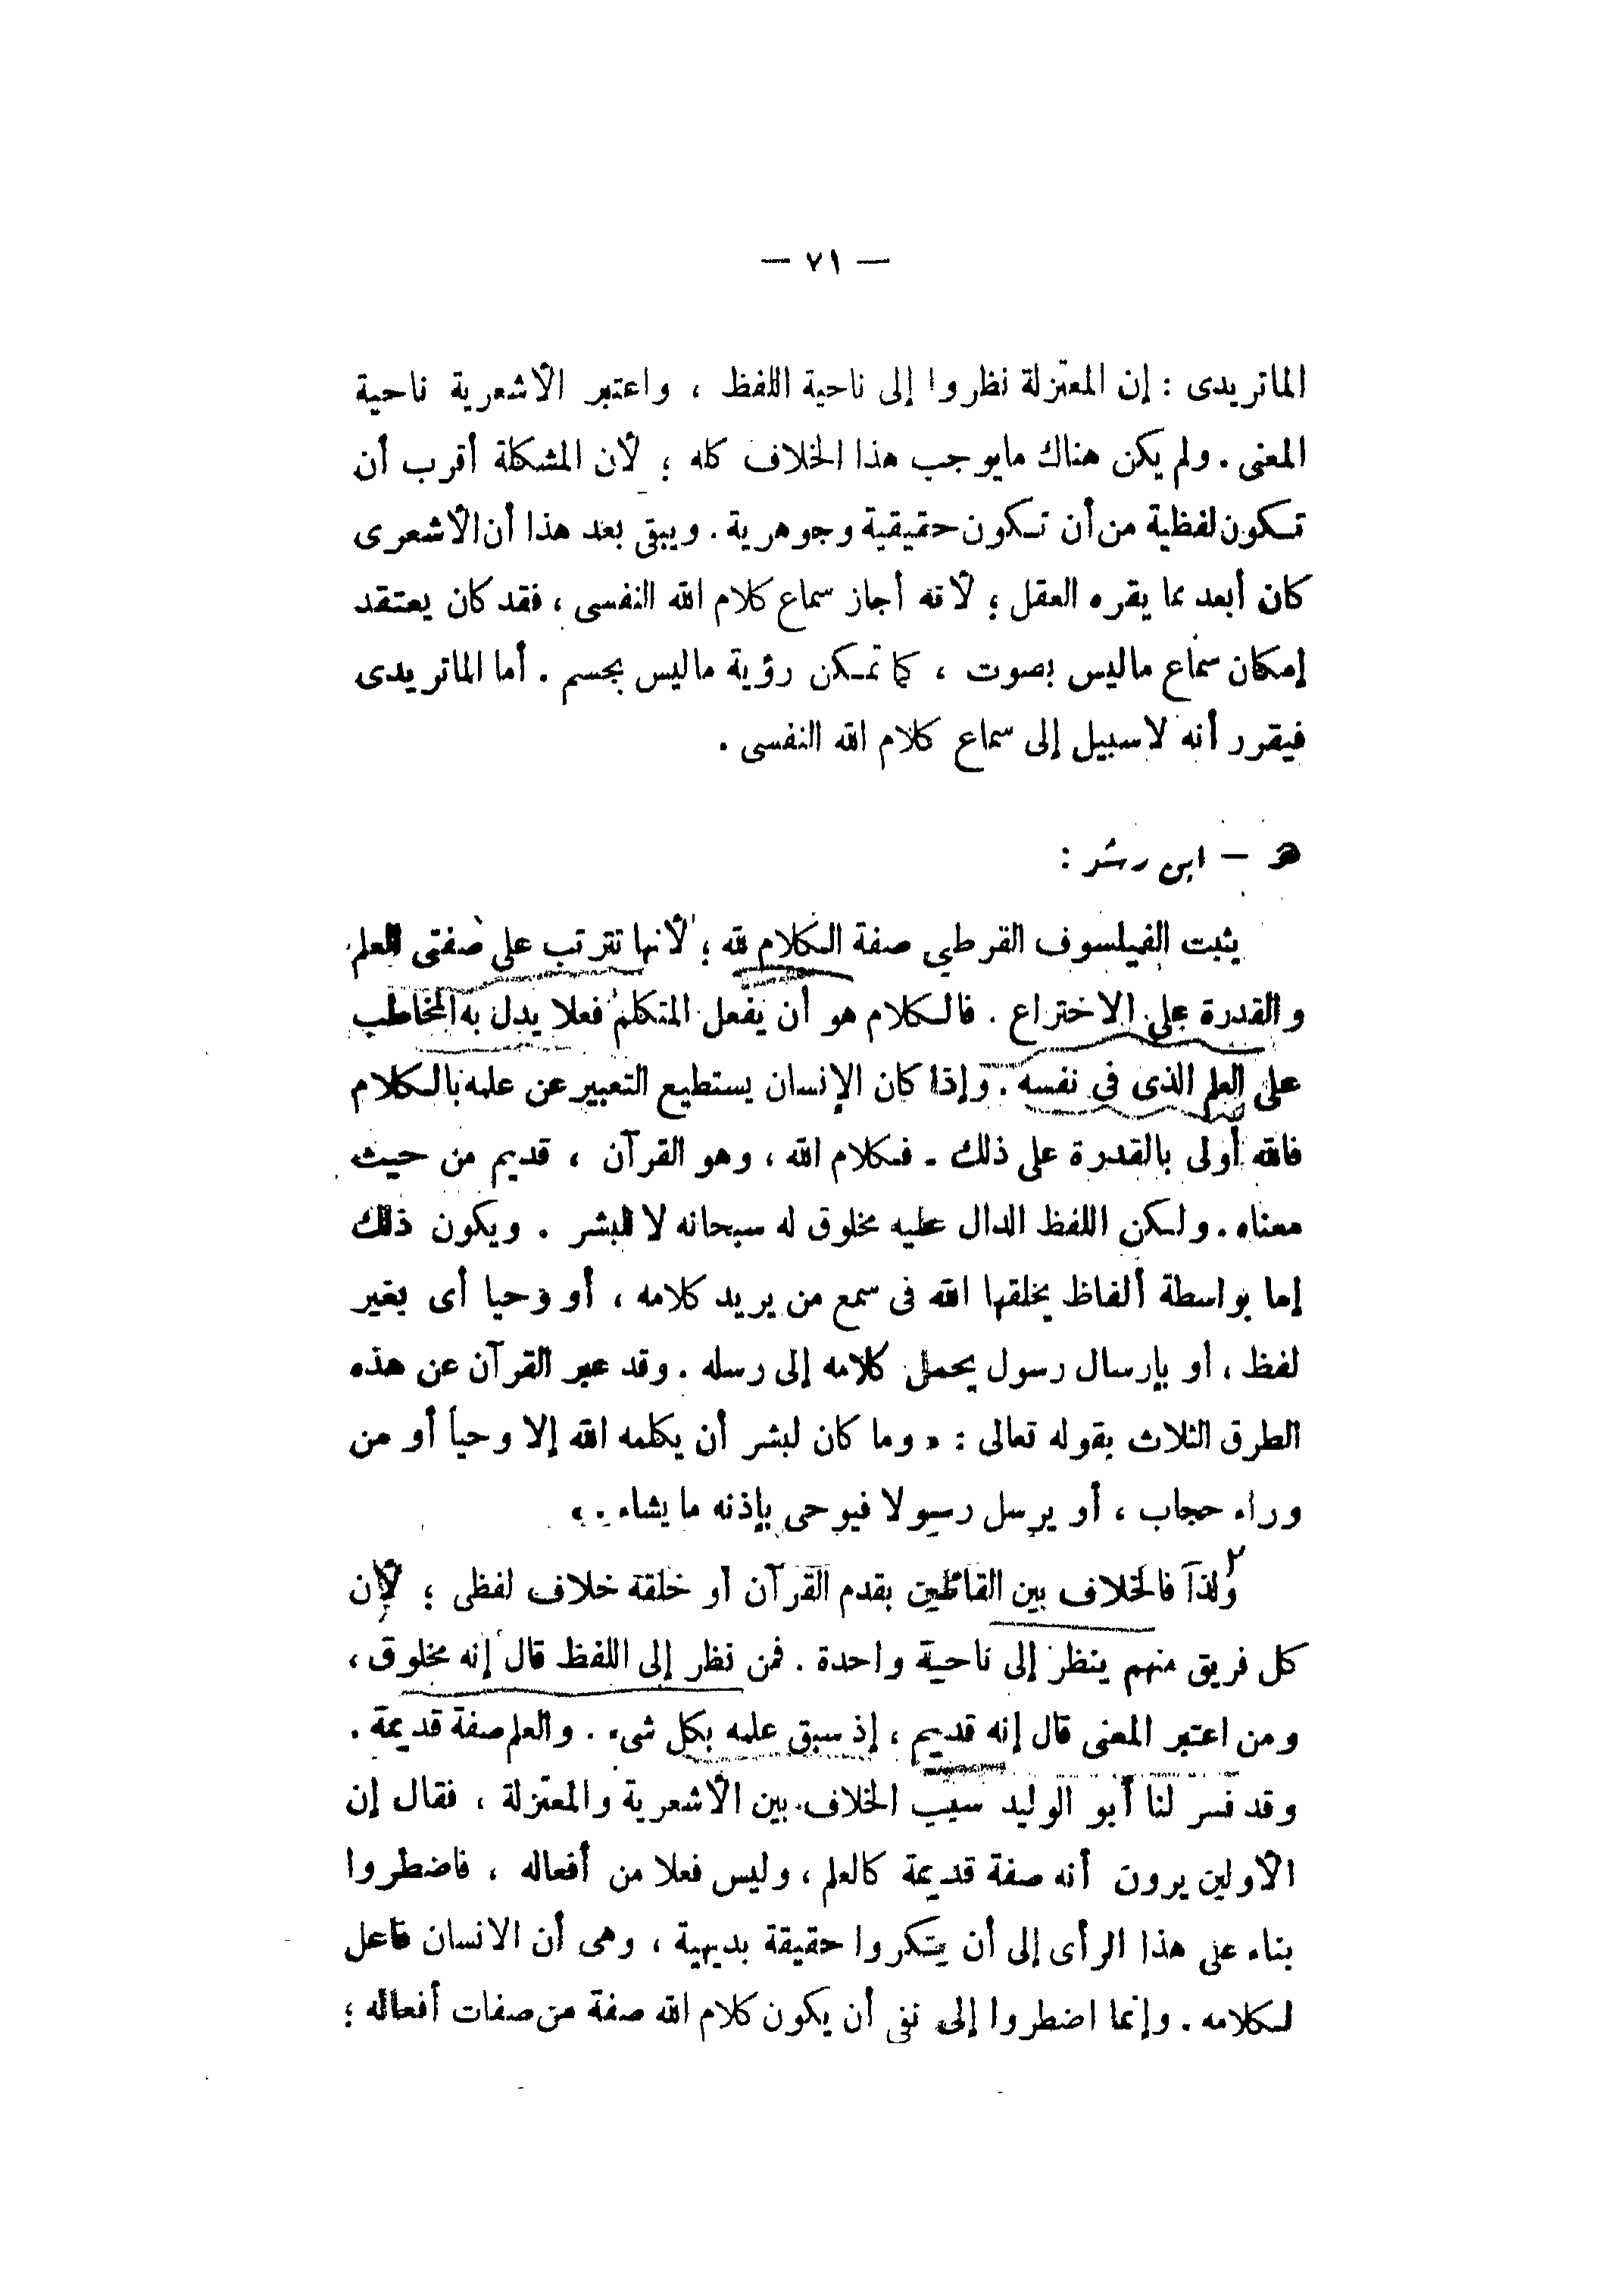 — ٧١ —
الماتريدى : إن المعتزلة نظروا إلى ناحية اللفظ ، واعتبر الأشعرية ناحية
المعنى . ولم يكن هناك مايوجب هذا الخلاف كله ؛ لأن المشكلة أقرب أن
تكون لفظية من أن تكون حقيقية وجوهرية . ويبقى بعد هذا أن الأشعرى
كان أبعد مما يقره العقل ؛ لأنه أجاز سماع كلام الله النفسى ، فقد كان يعتقد
إمكان سماع ماليس بصوت ، كما تمكن رؤية ماليس بجسم . أما الماتريدى
فيقرر أنه لاسبيل إلى سماع كلام الله النفسى .
ه — ابن رشد :
يثبت الفيلسوف القرطبي صفة الكلام لله ؛ لأنها تترتب على صفتى العلم
والقدرة على الاختراع . فالكلام هو أن يفعل المتكلم فعلا يدل به المخاطب
على العلم الذى فى نفسه . وإذا كان الإنسان يستطيع التعبير عن علمه بالكلام
فالله أولى بالقدرة على ذلك . فكلام الله ، وهو القرآن ، قديم من حيث
معناه . ولكن اللفظ الدال عليه مخلوق له سبحانه لا للبشر . ويكون ذلك
إما بواسطة ألفاظ يخلقها الله فى سمع من يريد كلامه ، أو وحيا أى بغير
لفظ ، أو بإرسال رسول يحمل كلامه إلى رسله . وقد عبر القرآن عن هذه
الطرق الثلاث بقوله تعالى : « وما كان لبشر أن يكلمه الله إلا وحياً أو من
وراء حجاب ، أو يرسل رسولا فيوحى بإذنه ما يشاء . »
ولذا فالخلاف بين القائلين بقدم القرآن أو خلقة خلاف لفظى ؛ لأن
كل فريق منهم ينظر إلى ناحية واحدة . فمن نظر إلى اللفظ قال إنه مخلوق ،
ومن اعتبر المعنى قال إنه قديم ، إذ سبق علمه بكل شىء . والعلم صفة قديمة .
وقد فسر لنا أبو الوليد سبب الخلاف بين الأشعرية والمعتزلة ، فقال إن
الأولين يرون أنه صفة قديمة كالعلم ، وليس فعلا من أفعاله ، فاضطروا
بناء على هذا الرأى إلى أن ينكروا حقيقة بديهية ، وهى أن الانسان فاعل
لكلامه . وإنما اضطروا إلى نفى أن يكون كلام الله صفة من صفات أفعاله ؛